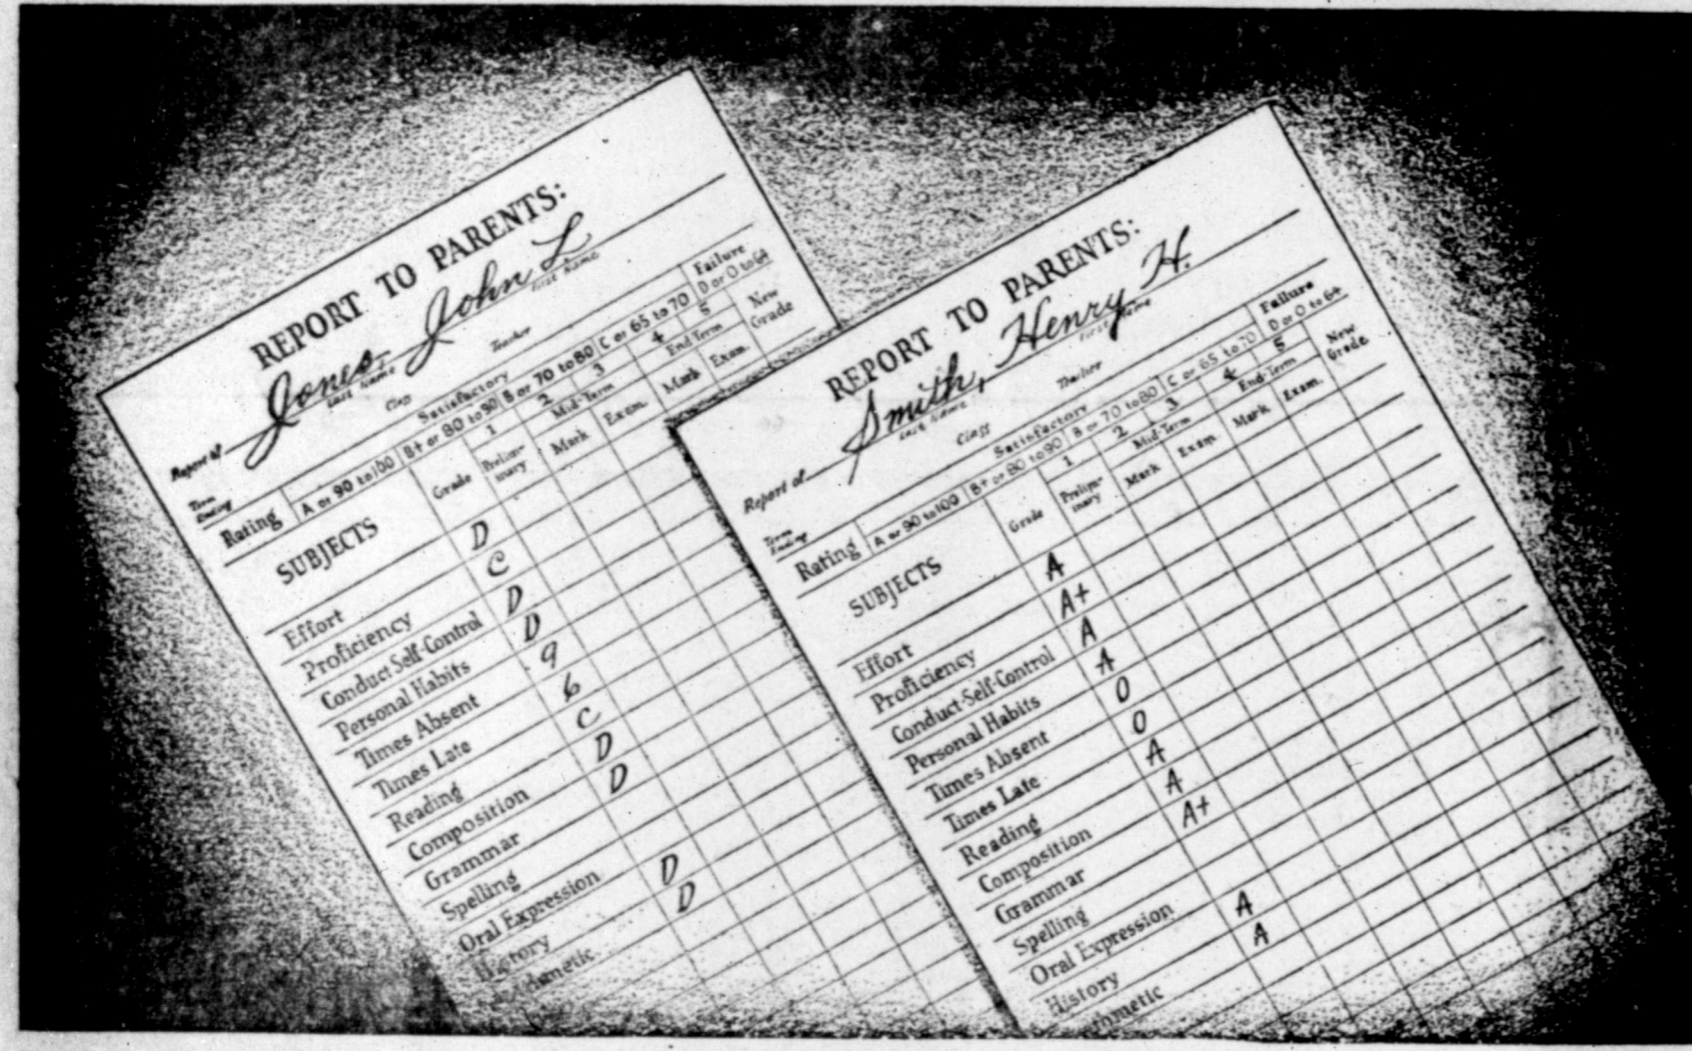 REPORT TO PARENTS:
Report of Jones John L
Last Name First Name
Class Teacher
Term Ending
Satisfactory Failure
Rating A or 90 to 100 B+ or 80 to 90 B or 70 to 80 C or 65 to 70 D or 0 to 64
1 2 3 4 5
SUBJECTS Grade Prelim-inary Mid-Term Mark Exam. End-Term Mark Exam. New Grade
Effort D
Proficiency C
Conduct-Self-Control D
Personal Habits D
Times Absent 9
Times Late 6
Reading C
Composition D
Grammar D
Spelling
Oral Expression
History D
thmetic D
REPORT TO PARENTS:
Report of Smith, Henry H.
Last Name First Name
Class Teacher
Term Ending
Satisfactory Failure
Rating A or 90 to 100 B+ or 80 to 90 B or 70 to 80 C or 65 to 70 D or 0 to 64
1 2 3 4 5
SUBJECTS Grade Prelim-inary Mid-Term Mark Exam. End-Term Mark Exam. New Grade
Effort A
Proficiency A+
Conduct-Self-Control A
Personal Habits A
Times Absent 0
Times Late 0
Reading A
Composition A
Grammar A+
Spelling
Oral Expression
History A
thmetic A